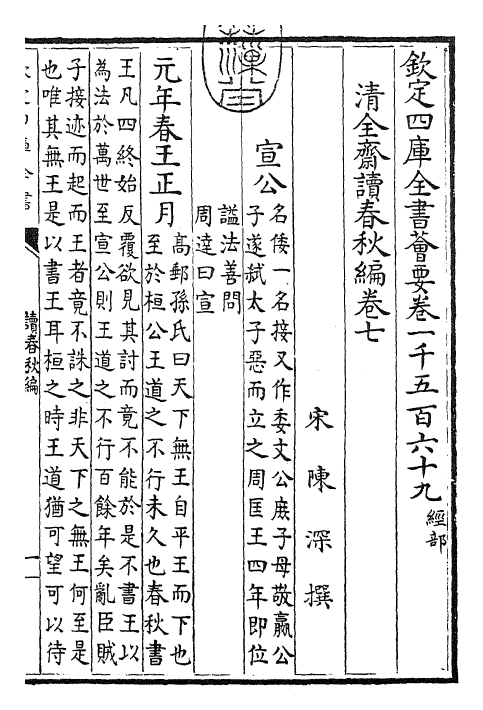 欽定四庫全書薈要卷一千五百六十九 經部
清全齋讀春秋編卷七
宋陳深撰
宣公
名倭一名接又作委文公庶子母敬嬴公
子遂弑太子惡而立之周匡王四年即位
諡法善問
周達曰宣
元年春王正月
高郵孫氏曰天下無王自平王而下也
至於桓公王道之不行未久也春秋書
王凡四終始反覆欲見其討而竟不能於是不書王以
為法於萬世至宣公則王道之不行百餘年矣亂臣賊
子接迹而起而王者竟不誅之非天下之無王何至是
也唯其無王是以書王耳桓之時王道猶可望可以待
讀春秋編
一